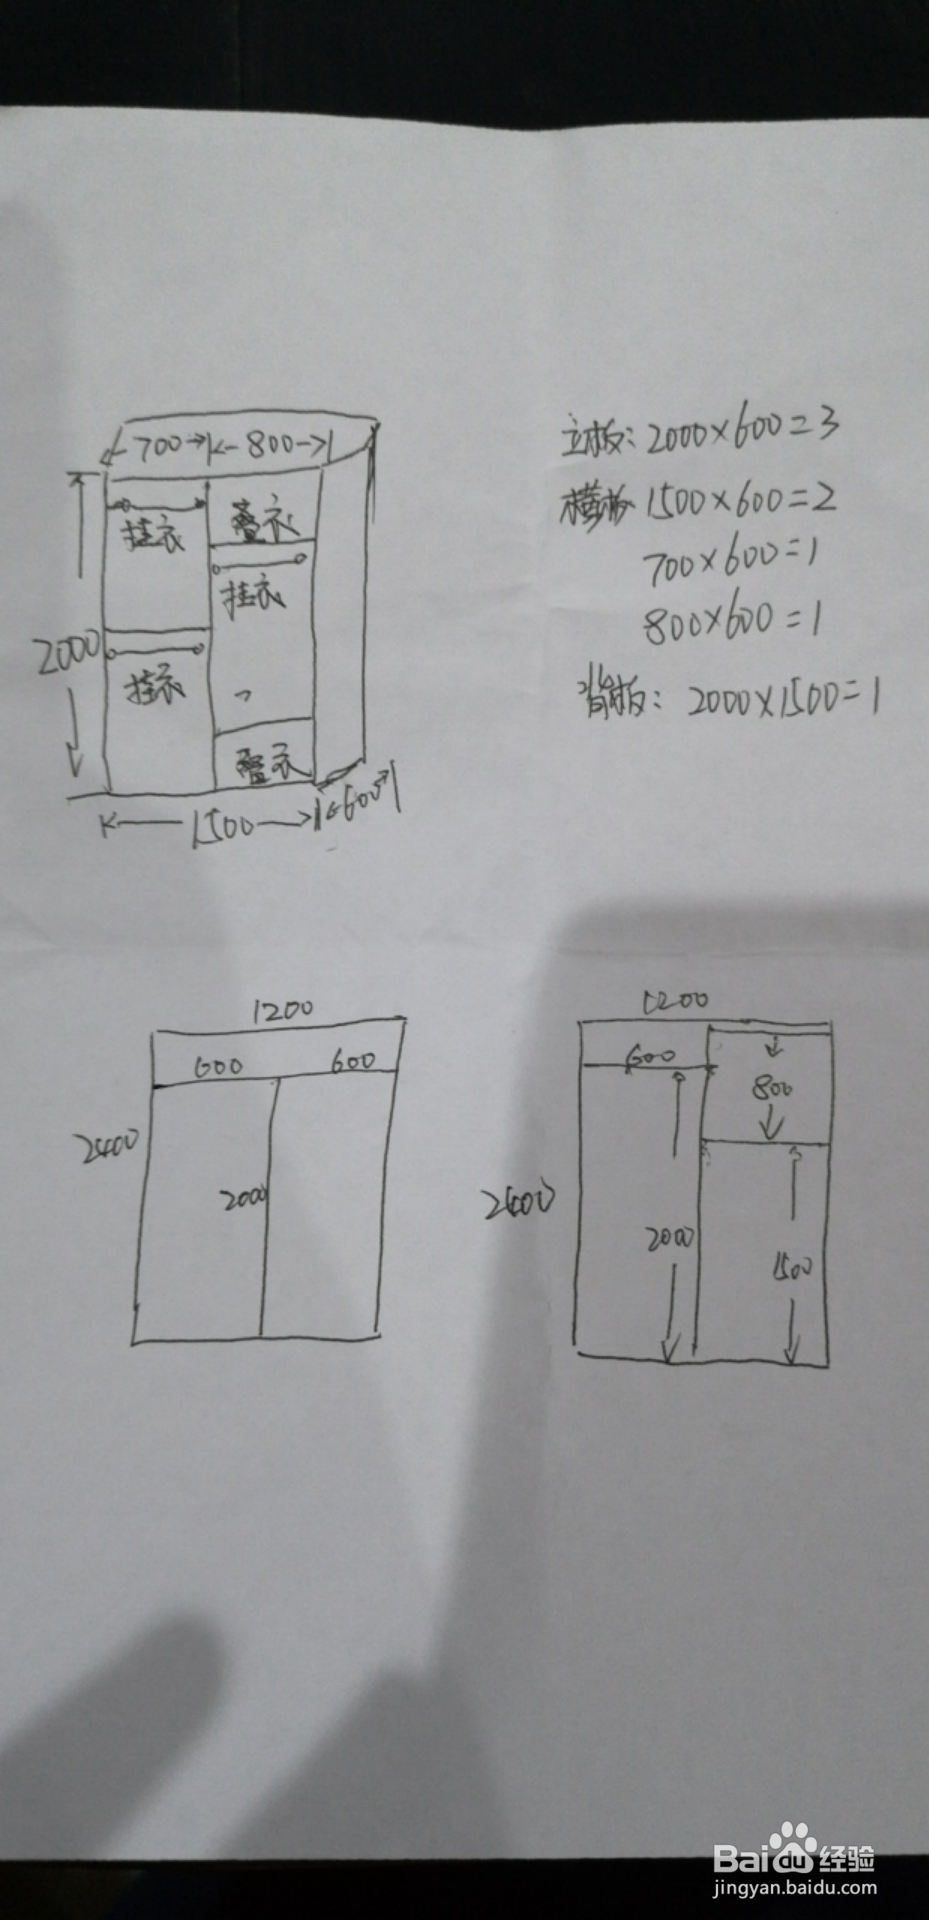 700 800
挂衣
叠衣
挂衣
2000
挂衣
叠衣
1500 600
立板：2000×600=3
横板 1500×600=2
700×600=1
800×600=1
背板：2000×1500=1
1200
600 600
2400
2000
1200
600
800
2400
2000
1500
Baidu经验
jingyan.baidu.com